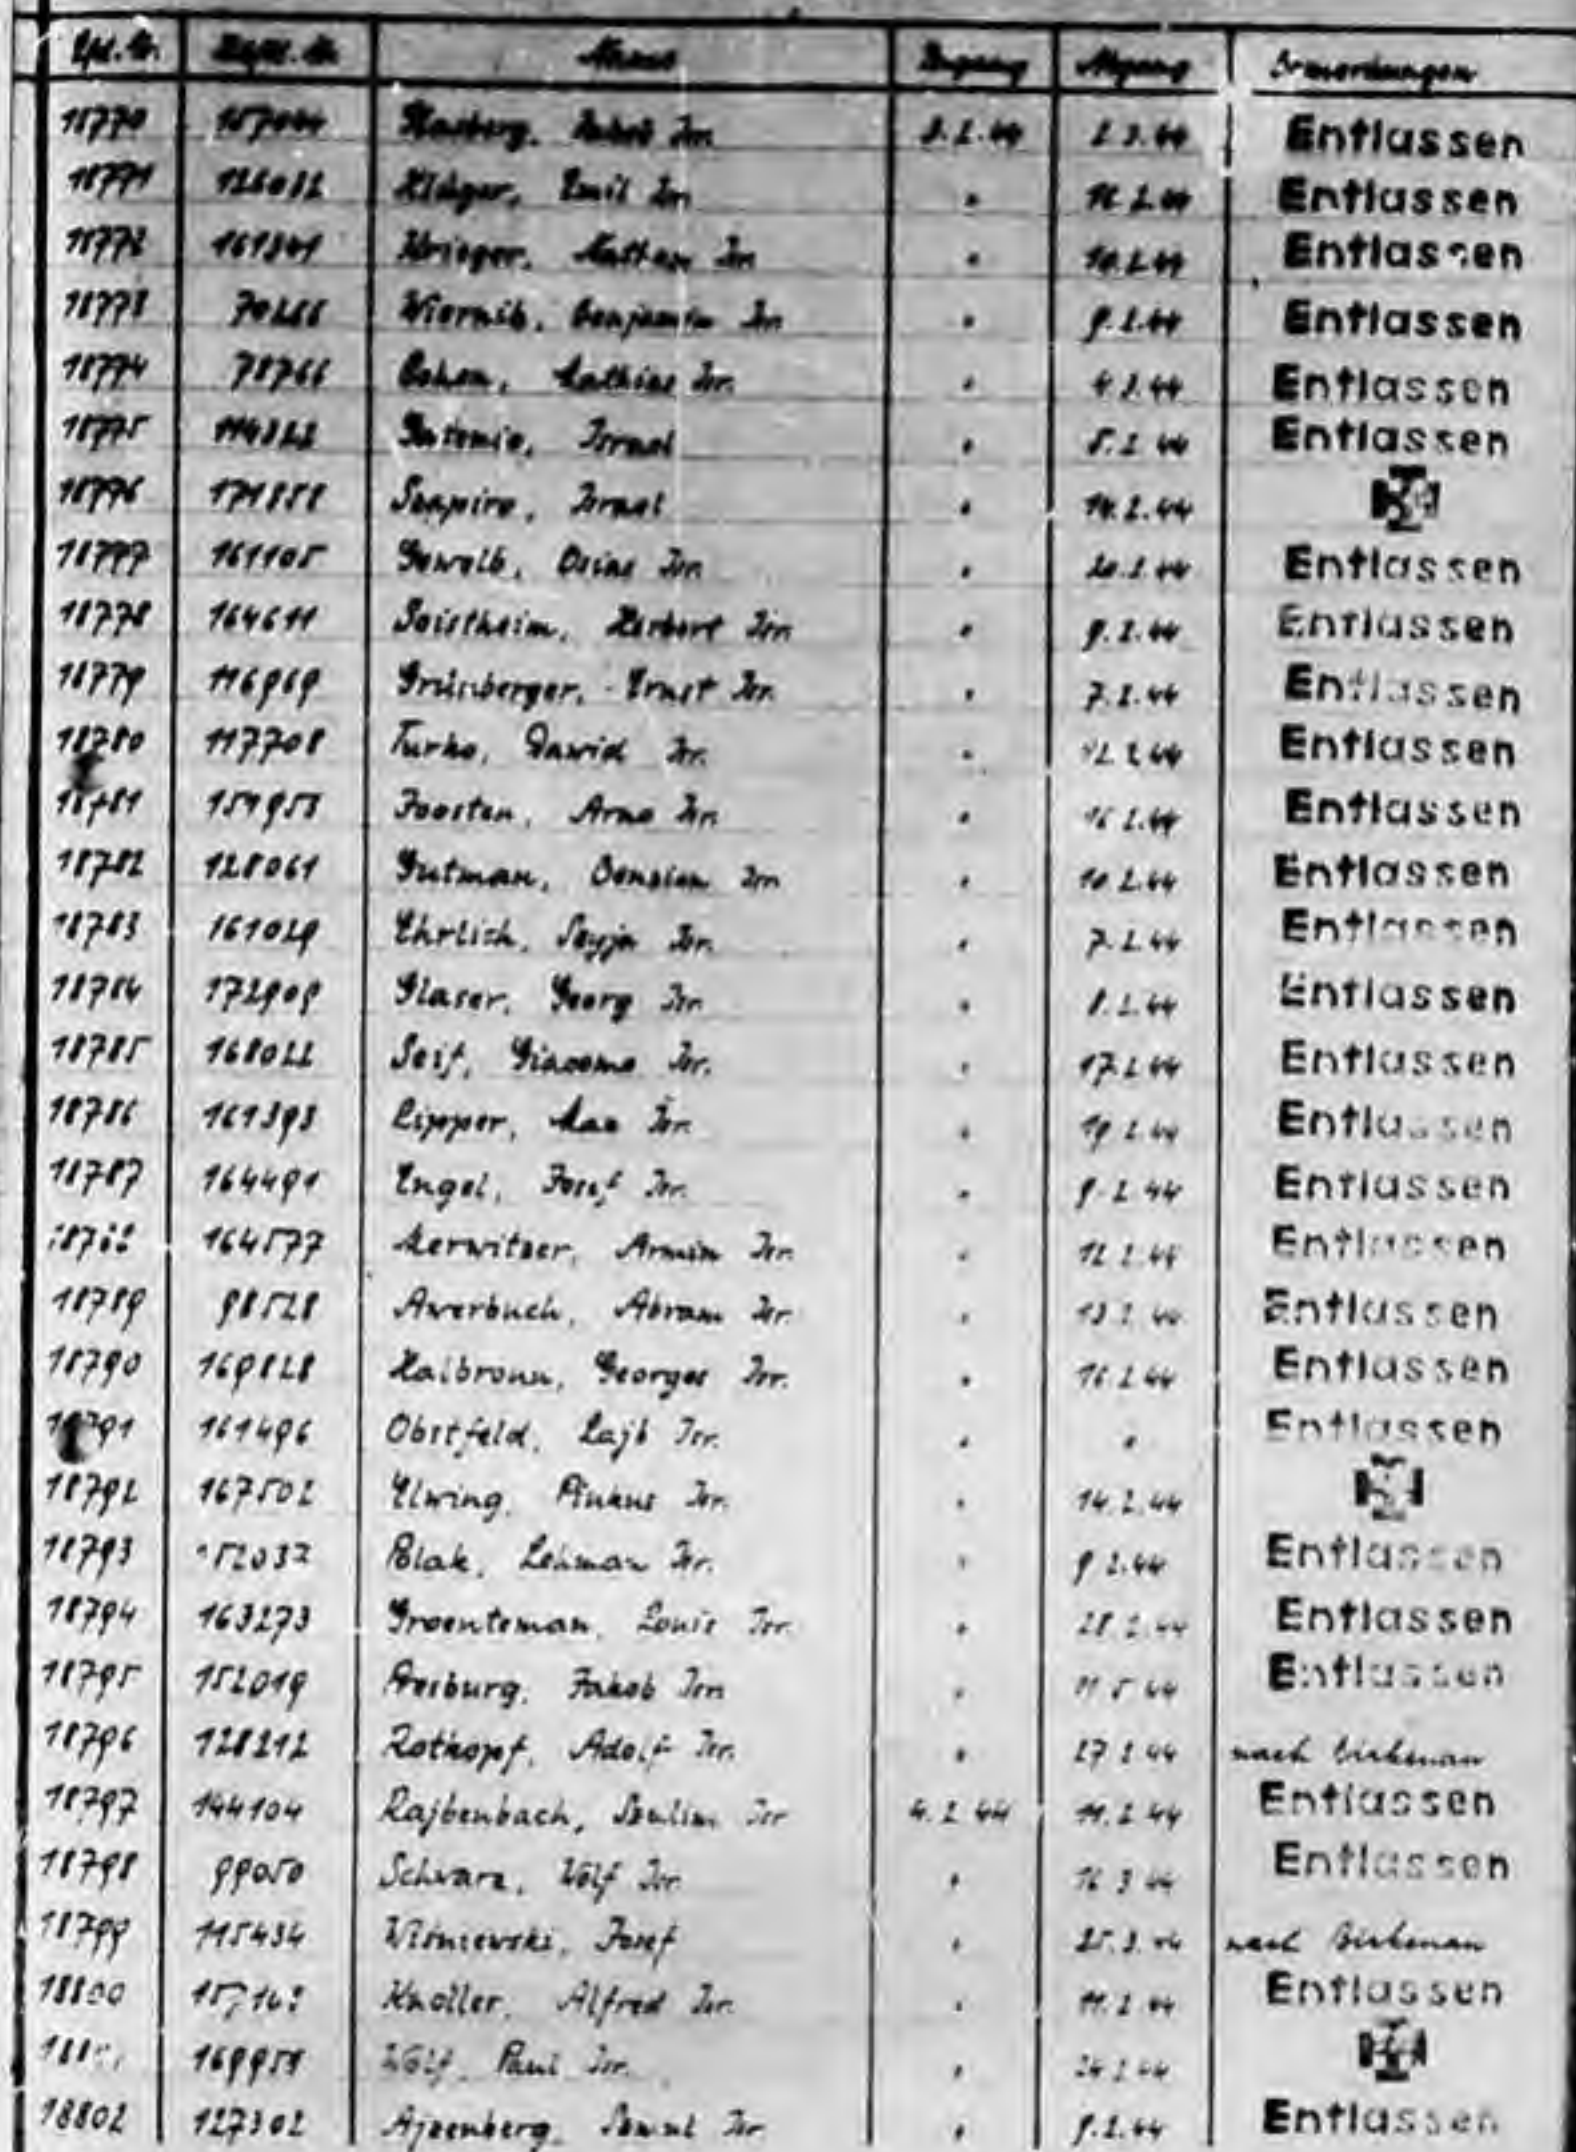 Lfd. Nr. Name Zugang Abgang Bemerkungen
18770 Isr. 3.2.44 2.3.44 Entlassen
18771 126032 Klüger, Emil Isr. " 16.2.44 Entlassen
18772 161341 Krieger, Nathan Isr. " 10.2.44 Entlassen
18773 Wiernik, Benjamin Isr. " 9.2.44 Entlassen
18774 78766 Cohen, Mathias Isr. " 4.3.44 Entlassen
18775 114322 Israel " 5.2.44 Entlassen
18776 171858 Szapiro, Israel " 14.2.44
18777 161105 Gewölb, Osias Isr. " 20.2.44 Entlassen
18778 164611 Geistheim, Herbert Isr. " 9.2.44 Entlassen
18779 116969 Grünberger, Ernst Isr. " 7.2.44 Entlassen
18780 117708 Turko, Dawid Isr. " 12.2.44 Entlassen
18781 151958 Joosten, Arno Isr. " 16.2.44 Entlassen
18782 128061 Gutman, Bension Isr. " 10.2.44 Entlassen
18783 161029 Ehrlich, Isr. " 7.2.44 Entlassen
18784 172909 Glaser, Georg Isr. " 8.2.44 Entlassen
18785 168022 Seif, Giacomo Isr. " 17.2.44 Entlassen
18786 161393 Lipper, Max Isr. " 19.2.44 Entlassen
18787 164491 Engel, Josef Isr. " 9.2.44 Entlassen
18788 164577 Merwitzer, Armin Isr. " 12.2.44 Entlassen
18789 98528 Awerbuch, Abram Isr. " 13.2.44 Entlassen
18790 169828 Halbronn, Georges Isr. " 16.2.44 Entlassen
18791 161496 Obstfeld, Lajb Isr. " " Entlassen
18792 167502 Elwing, Pinkus Isr. " 14.2.44
18793 152037 Blak, Lehman Isr. " 9.2.44 Entlassen
18794 163273 Groenteman, Louis Isr. " 28.2.44 Entlassen
18795 152019 Jakob Isr. " Entlassen
18796 128212 Rotkopf, Adolf Isr. " 27.2.44 nach Birkenau
18797 144104 Rajbenbach, Szulim Isr. 4.2.44 11.2.44 Entlassen
18798 99050 Schwarz, Wolf Isr. " 16.3.44 Entlassen
18799 115434 Wisniewski, Josef " 25.3.44 nach Birkenau
18800 Knoller, Alfred Isr. " 11.2.44 Entlassen
169951 Wolf, Paul Isr. " 24.2.44
18802 127302 Ajzenberg, Isr. " 9.2.44 Entlassen